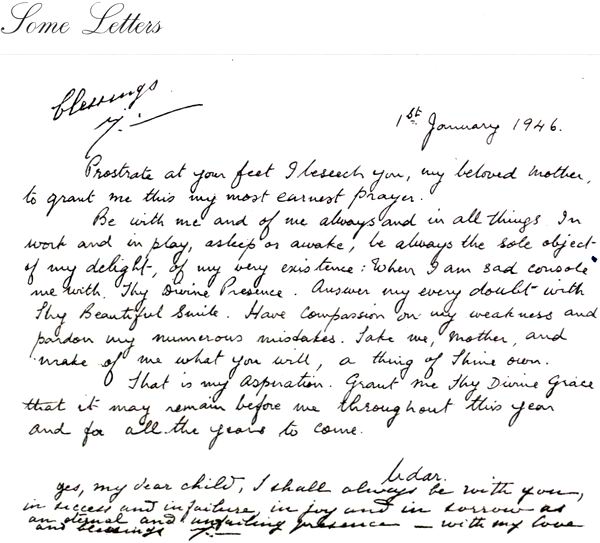 Some Letters
blessings
1st January 1946.
Prostrate at your feet I beseech you, my beloved Mother,
to grant me this my most earnest prayer.
Be with me and of me always and in all things. In
work and in play, asleep or awake, be always the sole object
of my delight, of my very existence: When I am sad console
me with Thy Divine Presence. Answer my every doubt with
Thy Beautiful Smile. Have compassion on my weakness and
pardon my numerous mistakes. Take me, Mother, and
make of me what you will, a thing of Thine own.
That is my aspiration. Grant me Thy Divine Grace
that it may remain before me throughout this year
and for all the years to come.
Udar.
yes, my dear child, I shall always be with you,
in success and in failure, in joy and in sorrow as
an eternal and unfailing presence — with my love
and blessings